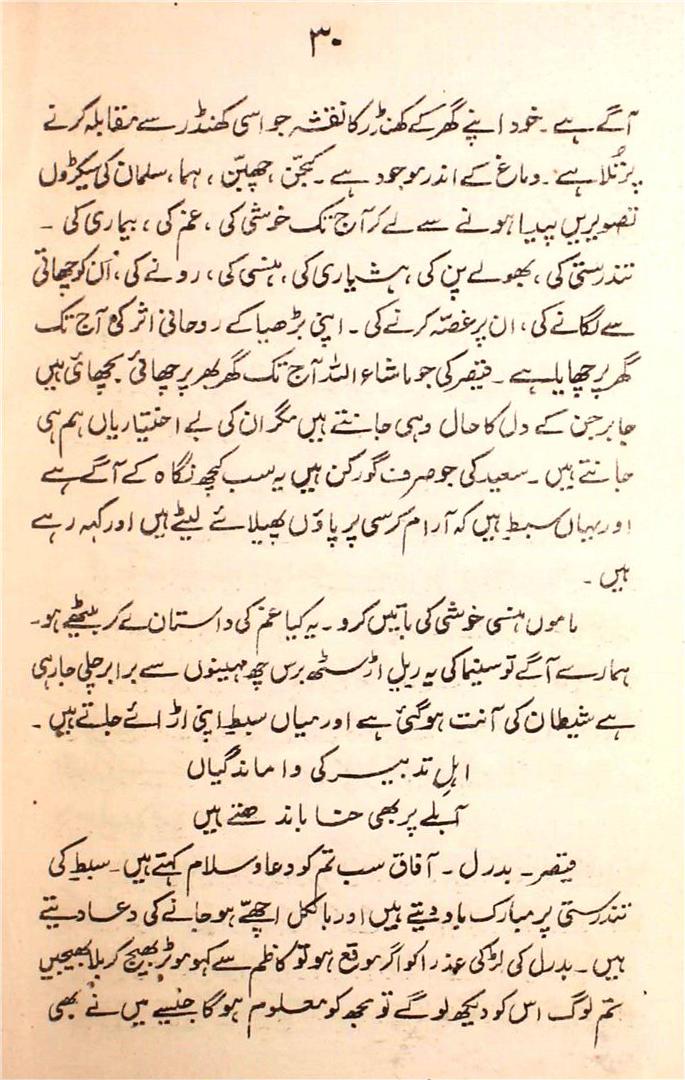 ۳۰
آگے ہے ۔ خود اپنے گھر کے کھنڈر کا نقشہ جو اسی کھنڈر سے مقابلہ کرنے
پر تُلا ہے ۔ دماغ کے اندر موجود ہے ۔ کجّن، چھبّن ، ہما، سلمان کی سیکڑوں
تصویریں پیدا ہونے سے لے کر آج تک خوشی کی ، غم کی ، بیماری کی ۔
تندرستی کی ، بھولے پن کی ، ہشیاری کی ، ہنسی کی، رونے کی، اُن کو چھاتی
سے لگانے کی ، ان پر غصّہ کرنے کی ۔ اپنی بڑھیا کے روحانی اثر کی جو آج تک
گھر پر چھایا ہے ۔ قیصر کی جو ماشاء اللہ آج تک گھر بھر پر چھائی بچھائی ہیں
جابر جن کے دل کا حال وہی جانتے ہیں مگر ان کی بے اختیاریاں ہم ہی
جانتے ہیں ۔ سعید کی جو صرف گورکن ہیں یہ سب کچھ نگاہ کے آگے ہے
اور یہاں سبط ہیں کہ آرام کرسی پر پاؤں پھیلائے لیٹے ہیں اور کہہ رہے
ہیں ۔
ماموں ہنسی خوشی کی باتیں کرو ۔ یہ کیا غم کی داستان لے کر بیٹھے ہو ۔
ہمارے آگے تو سنیما کی یہ ریل اڑسٹھ برس چھ مہینوں سے برابر چلی جا رہی
ہے شیطان کی آنت ہوگئی ہے اور میاں سبط اپنی اڑائے جاتے ہیں ۔
اہلِ تدبیر کی واماندگیاں
آبلے پر بھی حنا باندھتے ہیں
قیصر ۔ بدرل ۔ آفاق سب تم کو دعا و سلام کہتے ہیں ۔ سبط کی
تندرستی پر مبارک باد دیتے ہیں اور بالکل اچھّے ہو جانے کی دعا دیتے
ہیں ۔ بدرل کی لڑکی عذرا کو اگر موقع ہو تو کاظم سے کہو موٹر بھیج کر بلا بھیجیں
تم لوگ اس کو دیکھ لو گے تو مجھ کو معلوم ہوگا جیسے میں نے بھی